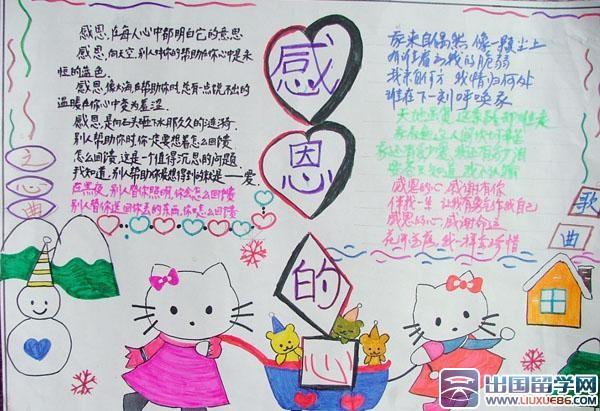 感恩的心
心之曲
感恩,在每人心中都明白它的意思
感恩,向天空,别人对你的帮助在你心中是永
恒的蓝色.
感恩,像大海,在帮助你时,总有一点说不出的
温暖在你心中变为羞涩.
感恩,是向石头
别人帮助你时,你一定要想着怎么回
怎么回 ,这是个值得沉思的问题.
我知道,别人帮助你最想得到的就是——爱.
在黑夜,别人替你照明,你会怎么回
别人替你送回你丢的东西,你怎么回
歌曲
我来自偶然 像一颗尘土
有谁看出我的脆弱
我来自何方 我情归何处
谁在下一刻呼唤我
天地虽宽 这条路却难走
我看遍这人间坎坷辛苦
我还有多少爱 我还有多少泪
要苍天知道 我不认输
感恩的心 感谢有你
伴我一生 让我有勇气作我自己
感恩的心 感谢命运
花开花落 我一样会珍惜
出国留学网
WWW.LIUXUE86.COM